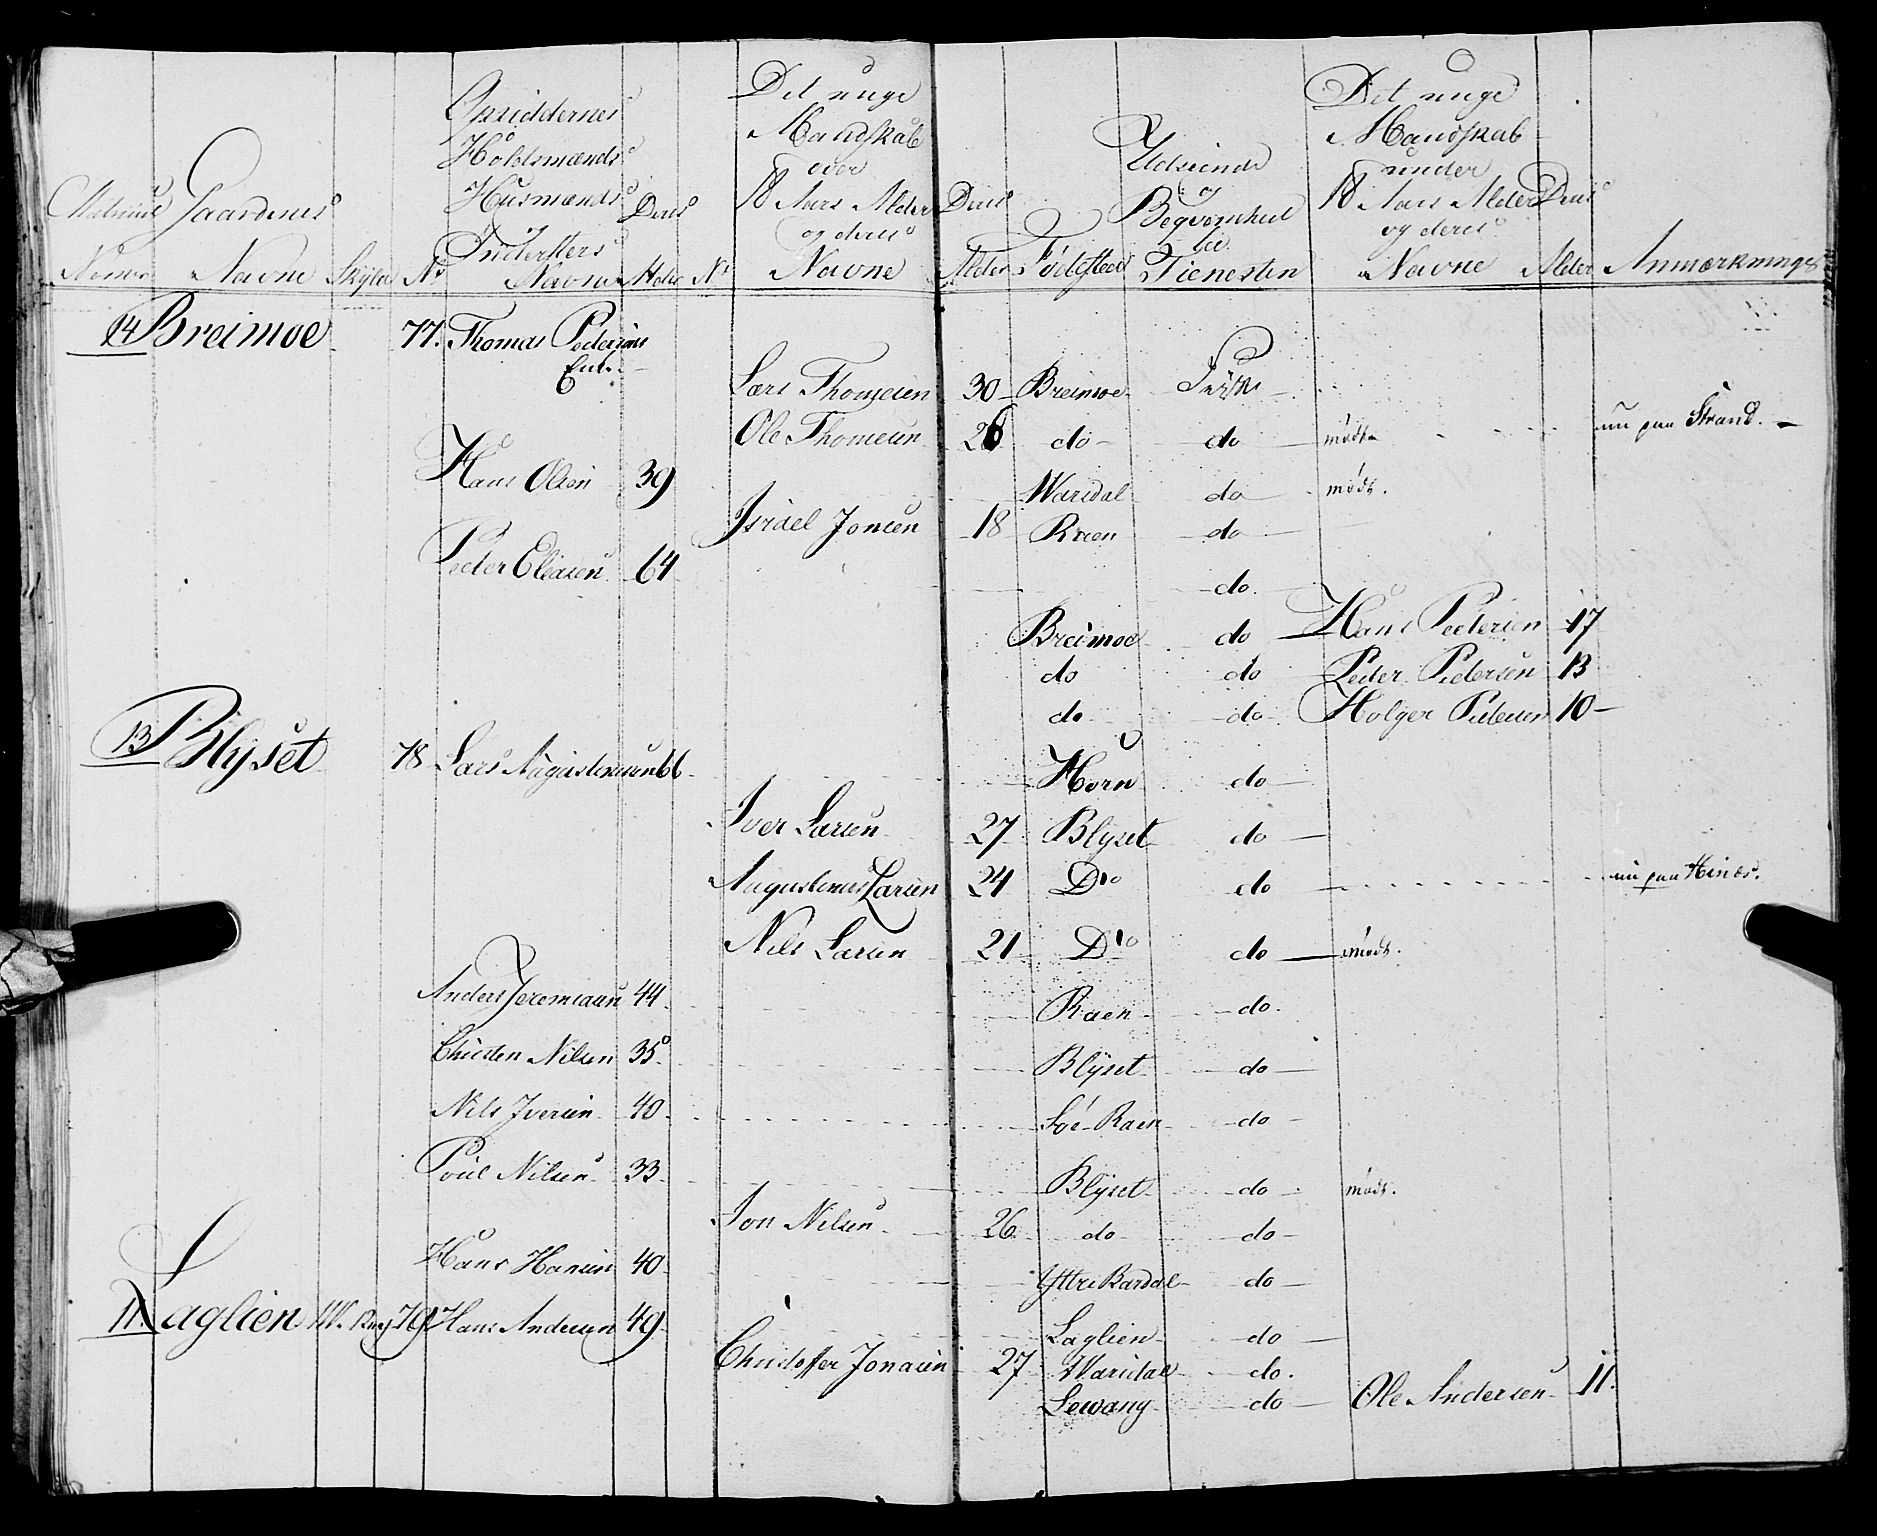 Matricul Nummer
Gaardenes Navne
Skyld
No
Opsiddernes Holdsmænds Husmænds Indersters Navne
Deres Alder
No
Det unge Mandskab over 18 Aars Alder og deres Navne
Deres Alder
Fødested
Udseende og Beqvemhed til Tienesten
Det unge Mandskab under 18 Aars Alder og deres Navne
Deres Alder
Anmærkninger
14 Breimoe 77. Thomas Pedersens
Enke
Lars Thomesen 30 Breimoe
Ole Thomesen 26 do do mødt nu paa Strand.
Hans Olsen 39 Waridal do mødt.
Israel Jonsen 18 Raen do
Peder Eliasen 64 do.
Breimoe do Hans Pedersen 17
do do Peder Pedersen 13
do do Holger Pedersen 10
13 Blyset 78 Lars Augustinusen 66 Horn do
Iver Larsen 27 Blyset do
Augustinus Larsen 24 Do do nu paa Hinæs.
Nils Larsen 21 Do do mødt.
Anders Jeremiasen 44 Raen do.
Christen Nilsen 35 Blyset do
Nils Iversen 40 Søe-Raen do
Poul Nilsen 33 Blyset do mødt.
Jon Nilsen 26 do do
Hans Hansen 40 Yttre Bardal do
11. Laglien 79 Hans Andersen 49 Laglien do
Christoffer Jonasen 27 Waridal do.
Lewang do Ole Andersen 11.